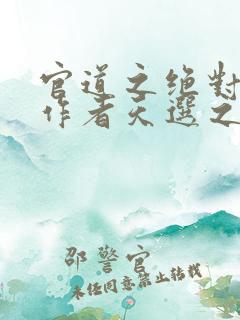 官道之绝对
作者天选之
邵警官
未经同意禁止转载